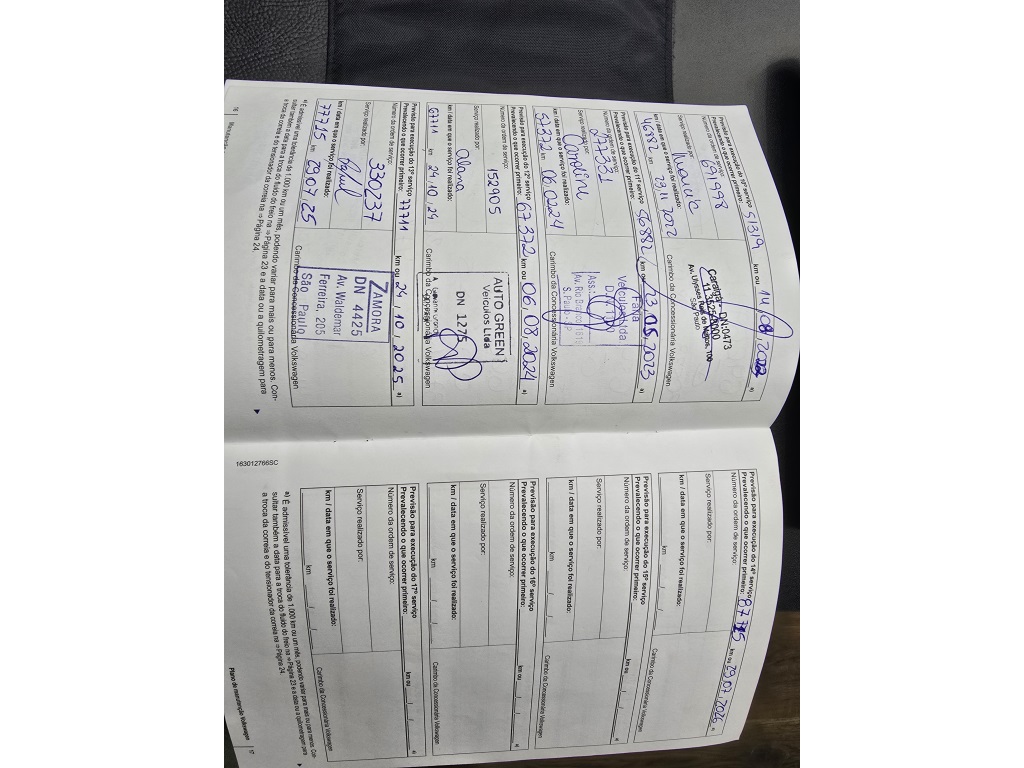 Previsão para execução do 10º serviço
Prevalecendo o que ocorrer primeiro: 51319 km ou 14, 08, 2022 a)
Número da ordem de serviço:
691998
Serviço realizado por:
km / data em que o serviço foi realizado:
46882 km 23,11,2022
Caraigá - DN:0473
São Paulo
Carimbo da Concessionária Volkswagen
Previsão para execução do 11º serviço
Prevalecendo o que ocorrer primeiro: 56882 km ou 23, 05, 2023 a)
Número da ordem de serviço:
277301
Serviço realizado por:
Caroline
km / data em que o serviço foi realizado:
57372 km 06 02 24
Faria
Veículos Ltda
Carimbo da Concessionária Volkswagen
Previsão para execução do 12º serviço
Prevalecendo o que ocorrer primeiro: 67372 km ou 06, 08, 2024 a)
Número da ordem de serviço:
152905
Serviço realizado por:
Alana
km / data em que o serviço foi realizado:
67711 km 24,10,24
AUTO GREEN
Veículos Ltda
DN 1275
Carimbo da Concessionária Volkswagen
Previsão para execução do 13º serviço
Prevalecendo o que ocorrer primeiro: 77711 km ou 24, 10, 2025 a)
Número da ordem de serviço:
330237
Serviço realizado por:
km / data em que o serviço foi realizado:
77715 km 29,07,25
ZAMORA
DN 4425
Av. Waldemar
Ferreira, 205
São Paulo
Carimbo da Concessionária Volkswagen
a) É admissível uma tolerância de 1.000 km ou um mês, podendo variar para mais ou para menos. Con-
sultar também a data para a troca do fluido do freio na ⇒ Página 23 e a data ou a quilometragem para
a troca da correia e do tensionador da correia na ⇒ Página 24.
16
Previsão para execução do 14º serviço
Prevalecendo o que ocorrer primeiro: 87715 km ou 29, 07, 2026 a)
Número da ordem de serviço:
Serviço realizado por:
km / data em que o serviço foi realizado:
km / /
Carimbo da Concessionária Volkswagen
Previsão para execução do 15º serviço
Prevalecendo o que ocorrer primeiro: km ou / / a)
Número da ordem de serviço:
Serviço realizado por:
km / data em que o serviço foi realizado:
km / /
Carimbo da Concessionária Volkswagen
Previsão para execução do 16º serviço
Prevalecendo o que ocorrer primeiro: km ou / / a)
Número da ordem de serviço:
Serviço realizado por:
km / data em que o serviço foi realizado:
km / /
Carimbo da Concessionária Volkswagen
Previsão para execução do 17º serviço
Prevalecendo o que ocorrer primeiro: km ou / / a)
Número da ordem de serviço:
Serviço realizado por:
km / data em que o serviço foi realizado:
km / /
Carimbo da Concessionária Volkswagen
a) É admissível uma tolerância de 1.000 km ou um mês, podendo variar para mais ou para menos. Con-
sultar também a data para a troca do fluido do freio na ⇒ Página 23 e a data ou a quilometragem para
a troca da correia e do tensionador da correia na ⇒ Página 24.
163012766SC
Plano de manutenção Volkswagen 17